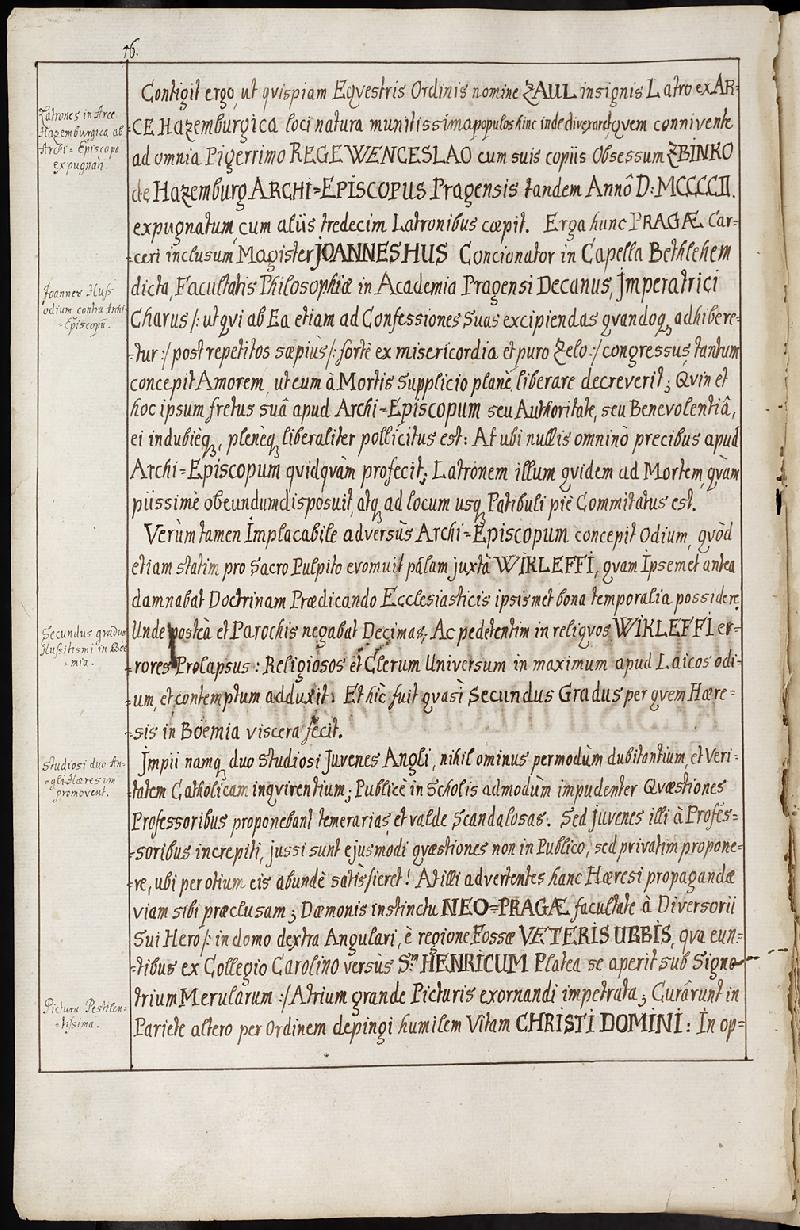 76.
Contigit ergo, ut qvispiam Eqvestris Ordinis nomine ZAUL insignis Latro ex AR-
CE Hazemburgica loci natura munitissima populos hinc inde diveraret, qvem connivente
ad omnia Pigerrimo REGE WENCESLAO cum suis copiis Obsessum ZBINKO
de Hazemburg ARCHI=EPISCOPUS Pragensis tandem Annô D: MCCCCII.
expugnatum, cum aliis tredecim Latronibus cœpit. Erga hunc PRAGÆ Car-
ceri inclusum, Magister JOANNES HUS Concionator in Capella Bethlehem
dicta, Facultatis Philosophiæ in Academia Pragensi Decanus, Imperatrici
Charus /: ut qvi ab Ea etiam ad Confessiones Suas excipiendas qvandoq, adhibere-
tur :/ post repetitos sæpius /: fortè ex misericordia et puro Zelo :/ congressus, tantum
concepit Amorem, ut eum à Mortis Supplicio planè, liberare decreverit; Qvin et
hoc ipsum fretus suâ apud Archi=Episcopum seu Authoritate, seu Benevolentiâ,
ei indubièq, plenèq, liberaliter pollicitus est: At ubi nullis omninò precibus apud
Archi=Episcopum qvidqvàm profecit; Latronem illum qvidem ad Mortem, qvàm
piissimè obeundum disposuit, atq, ad locum usq, Patibuli piè Commitatus est.
Verùmtamen Implacabile adversùs Archi=Episcopum concepit Odium, qvòd
etiam statim pro Sacro Pulpito evomuit pàlam juxtà WIKLEFFI, qvam Ipsemet antea
damnabat Doctrinam Prædicando Ecclesiasticis ipsismet bona temporalia possidere.
Unde posteà et Parochis negabat Decimas. Ac pedetentim in reliqvos WIKLEFFI er-
rores Prolapsus: Religiosos et Clerum Universum in maximum apud Laicos odi-
um, et contemptum adduxit: Et hic fuit qvasi Secundus Gradus per qvem Hære-
sis in Boëmia viscera fecit.
Impii namq, duo Studiosi Juvenes Angli, nihil ominus permodùm dubitantium, et Veri-
tatem Catholicam inqvirentium; Publicè in Scholis admodùm impudenter Qvæstiones
Professoribus proponebant temerarias, et valde Scandalosas. Sed juvenes illi à Profes-
soribus increpiti, jussi sunt ejusmodi qvæstiones non in Publico, sed privatim propone-
re, ubi per otium eis abundè satisfieret! At illi advertentes hanc Hæresi propagandæ
viam sibi præclusam; Dæmonis instinctu NEO=PRAGÆ facultate à Diversorii
Sui Hero /: in domo dextra Angulari, è regione Fossæ VETERIS URBIS, qva eun-
tibus ex Collegio Carolino versùs Sm HENRICUM Platea se aperit sub Signo
trium Merularum :/ Atrium grande Picturis exornandi impetrata; Curârunt in
Pariete altero per Ordinem depingi humilem Vitam CHRISTI DOMINI: In op-
Latrones in Arce
Hazemburgica ab
Archi=Episcopo
expugnati.
Joannes Huss
odium contra Archi
=Episcopũ.
Secundus gradus
Hussitismi in Boë
mia.
Studiosi duo An-
gli Hæresim
promovent.
Pictura Pestilen-
tissima.